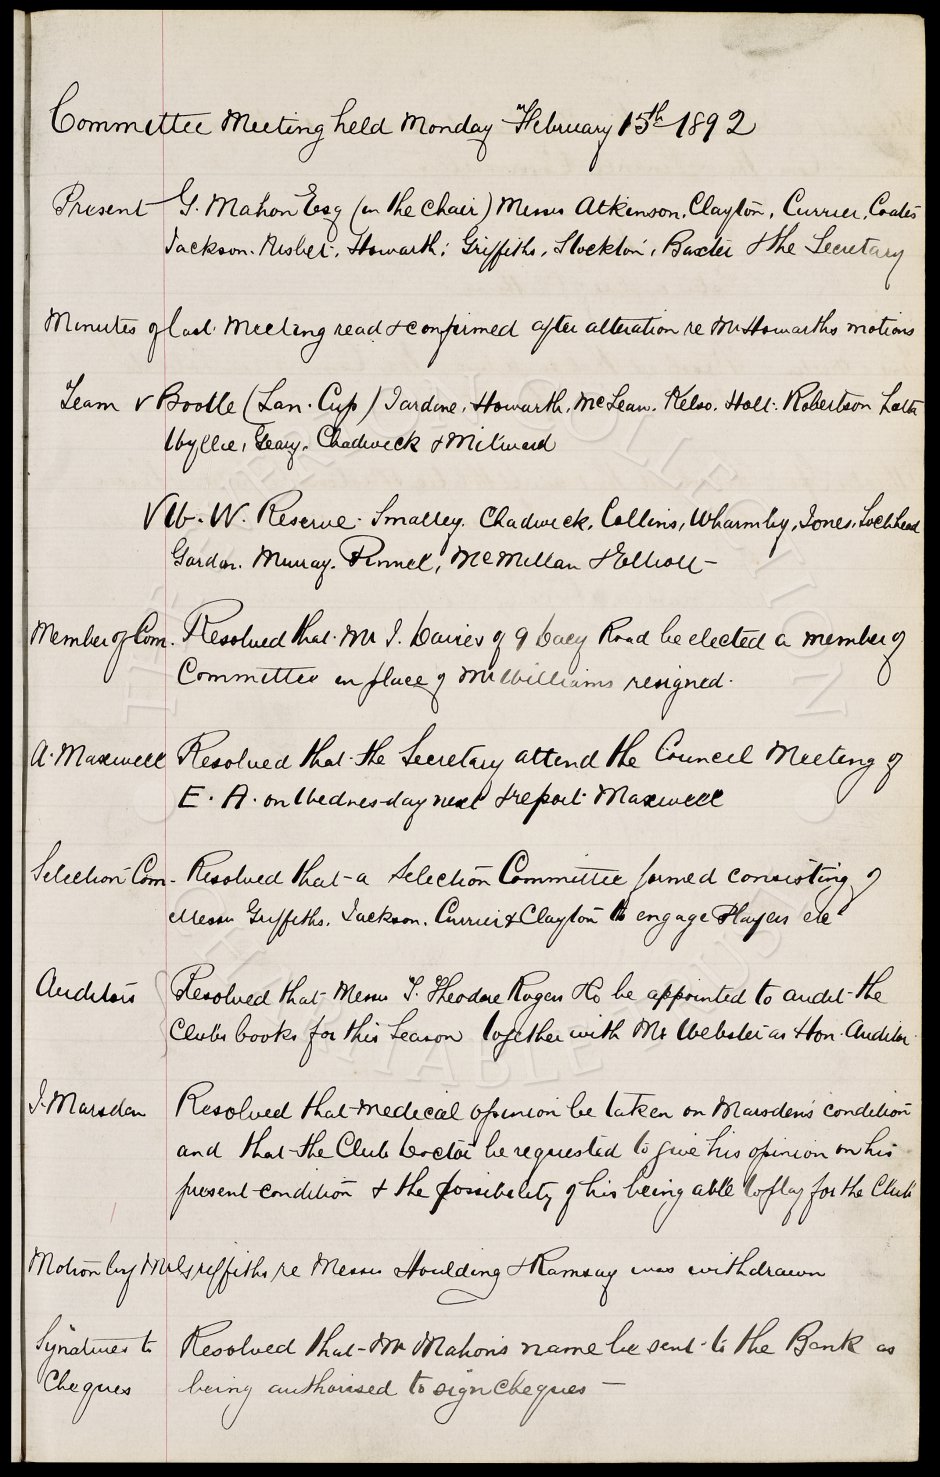 Committee Meeting held Monday February 15th 1892
Present G. Mahon Esq (in the chair) Messrs Atkinson, Clayton, Currier, Coates
Jackson. Nisbet. Howarth. Griffiths, Stockton, Baxter & the Secretary
Minutes of last Meeting read & confirmed after alteration re Mr Howarths motions
Team v Bootle (Lan. Cup) Jardine, Howarth, McLean. Kelso. Holt. Robertson Latta
Wyllie, Geary, Chadwick & Milward
V W. W. Reserve. Smalley. Chadwick, Collins, Wharmby, Jones, Lochhead
Gordon. Murray. Pinnell, McMillan & Elliott -
Member of Com. Resolved that Mr J. Davies of 9 Dacy Road be elected a member of
Committee in place of Mr Williams resigned.
A. Maxwell Resolved that the Secretary attend the Council Meeting of
F. A. on Wednesday next & report Maxwell
Selection Com- Resolved that a Selection Committee formed consisting of
Messrs Griffiths. Jackson. Currier & Clayton to engage Players etc
Auditors Resolved that Messrs T. Theodore Rogers & Co be appointed to audit the
Clubs books for this Season together with Mr Webster as Hon. Auditor.
J. Marsden Resolved that medical opinion be taken on Marsden's condition
and that the Club Doctor be requested to give his opinion on his
present condition & the possibility of his being able to play for the Club
Motion by Mr Griffiths re Messrs Houlding & Ramsay was withdrawn
Signatures to Resolved that Mr Mahon's name be sent to the Bank as
Cheques being authorised to sign cheques -
THE EVERTON COLLECTION
CHARITABLE TRUST